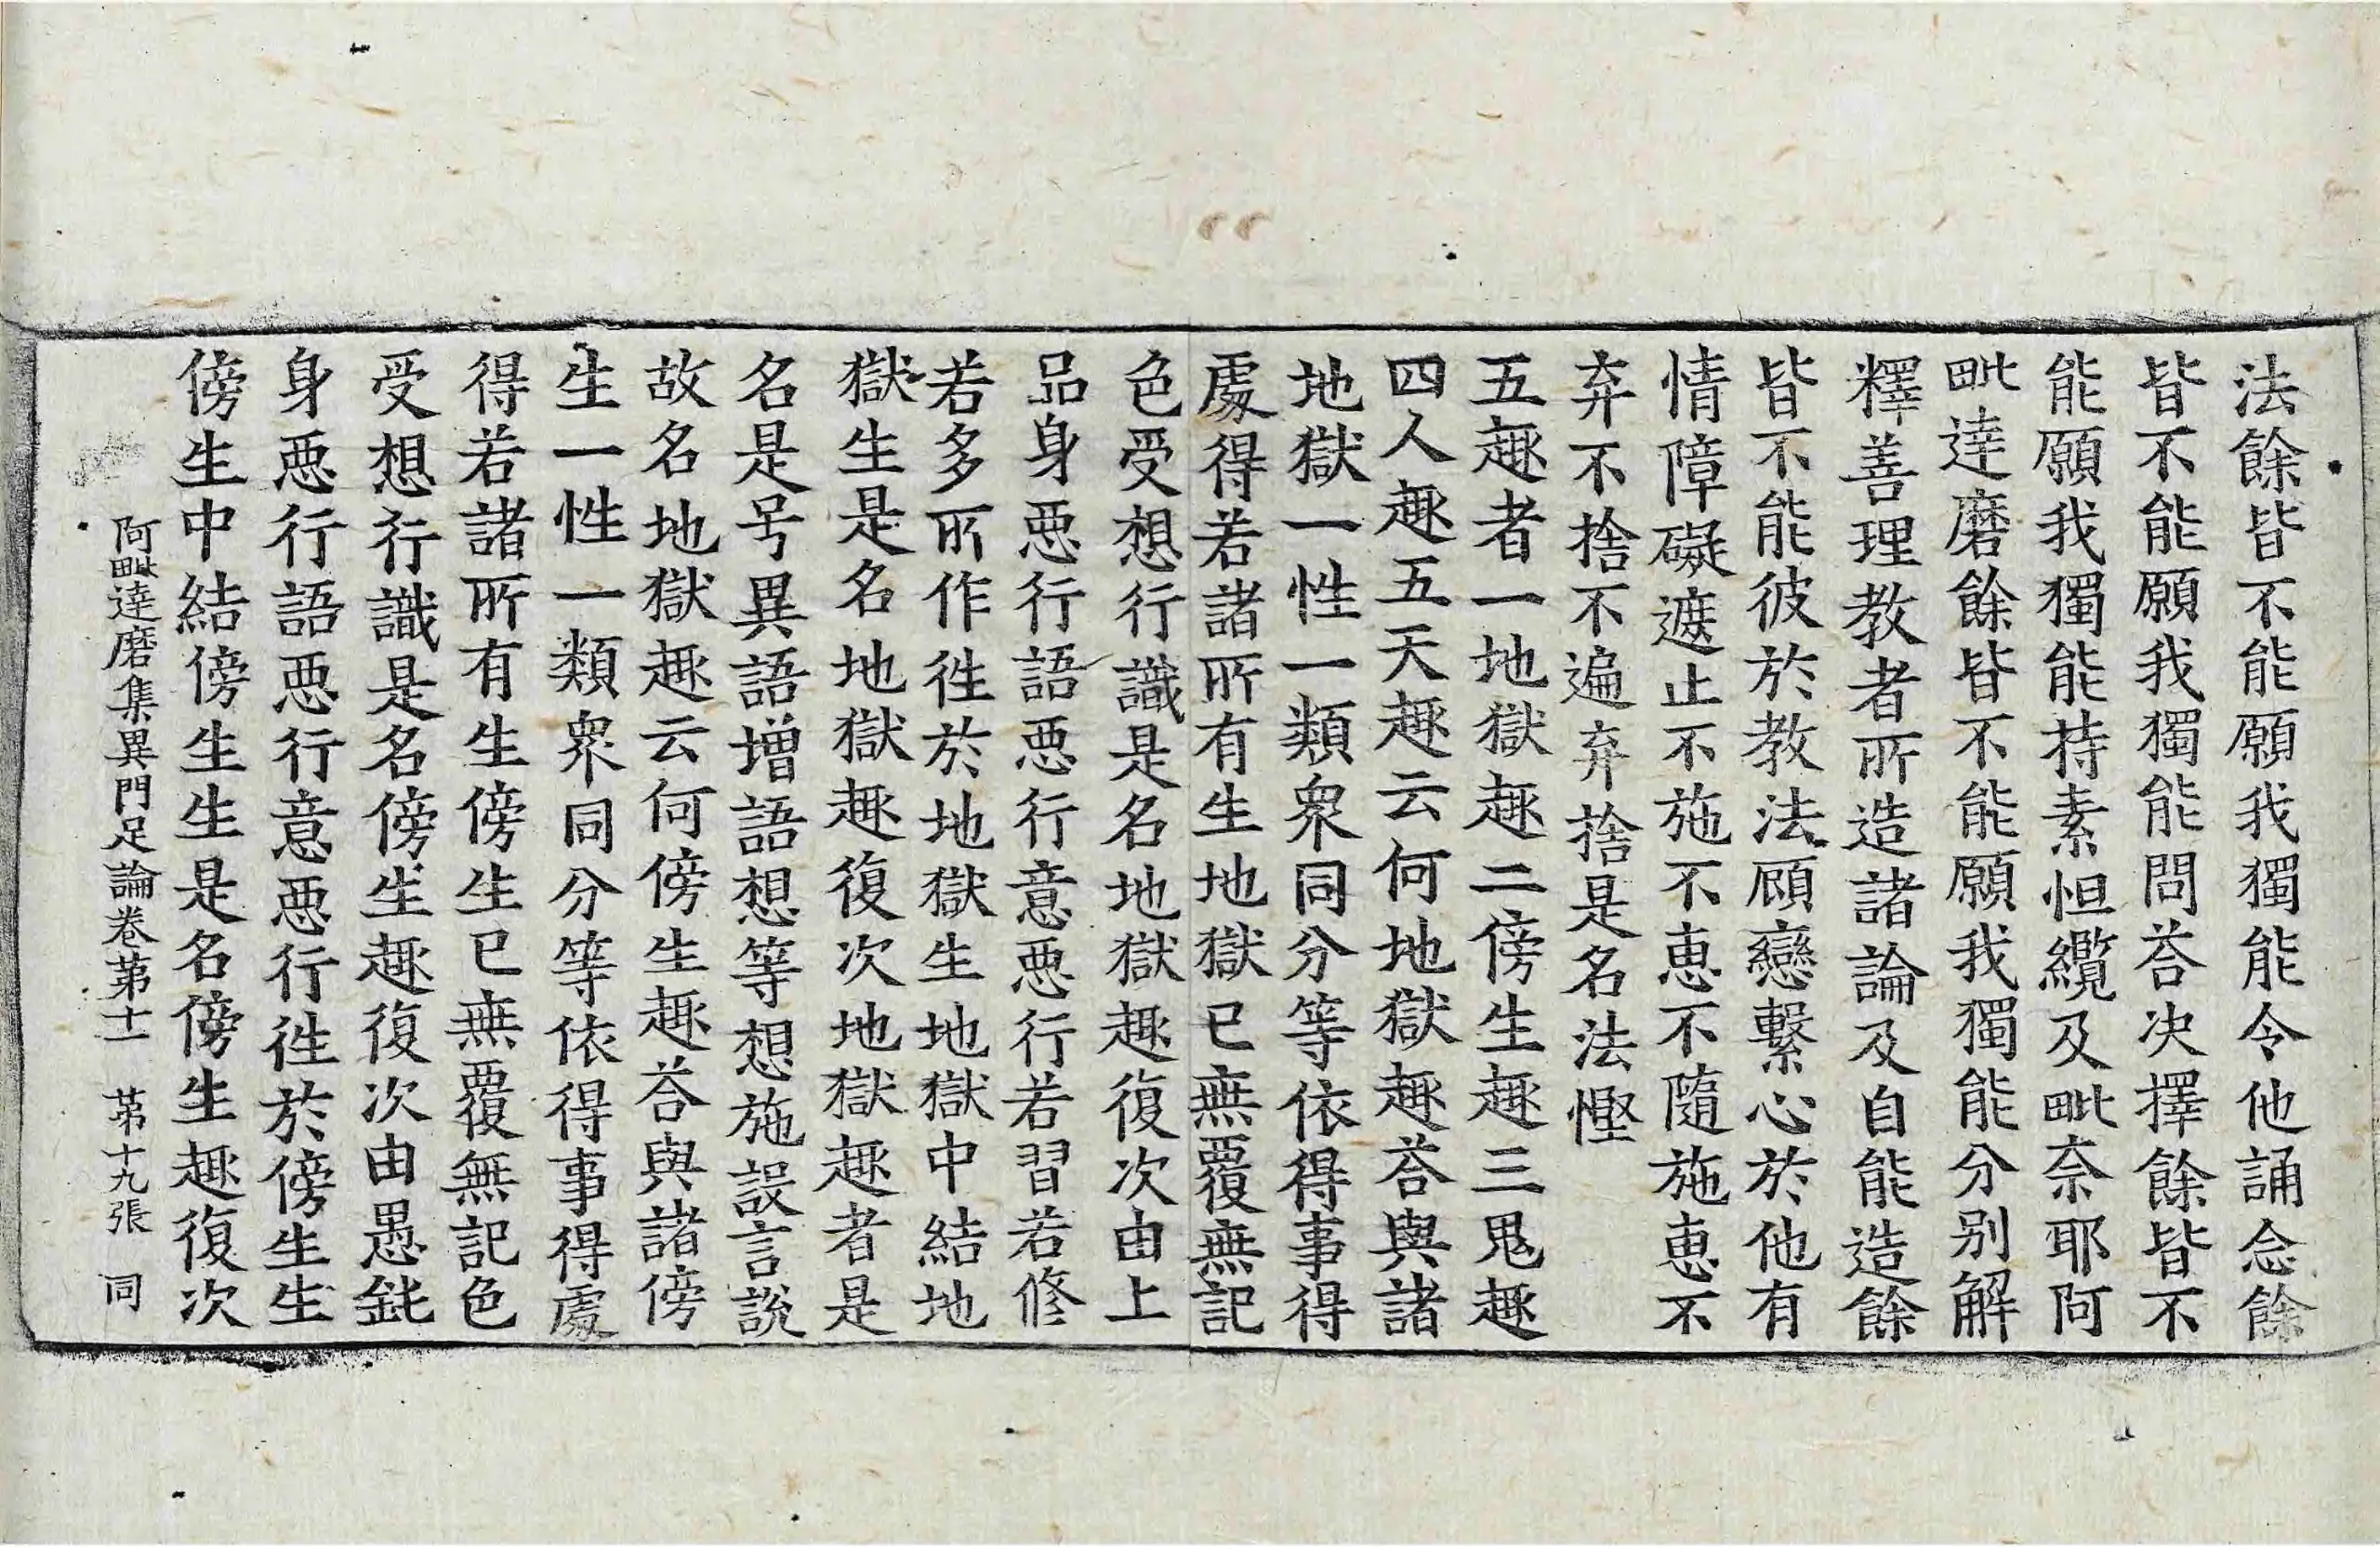 法餘皆不能願我獨能令他誦念餘
皆不能願我獨能問荅決擇餘皆不
能願我獨能持素怛纜及毗奈耶阿
毗達磨餘皆不能願我獨能分別解
釋善理教者所造諸論及自能造餘
皆不能彼於教法顧戀繫心於他有
情障礙遮止不施不恵不隨施恵不
弃不捨不遍弃捨是名法慳
五趣者一地獄趣二傍生趣三鬼趣
四人趣五天趣云何地獄趣荅與諸
地獄一性一類衆同分等依得事得
處得若諸所有生地獄已無覆無記
色受想行識是名地獄趣復次由上
品身惡行語惡行意惡行若習若修
若多所作徃於地獄生地獄中結地
獄生是名地獄趣復次地獄趣者是
名是号異語增語想等想施設言說
故名地獄趣云何傍生趣荅與諸傍
生一性一類衆同分等依得事得處
得若諸所有生傍生已無覆無記色
受想行識是名傍生趣復次由愚鈍
身惡行語惡行意惡行徃於傍生生
傍生中結傍生生是名傍生趣復次
阿毗達磨集異門足論卷苐十一 苐十九張 同